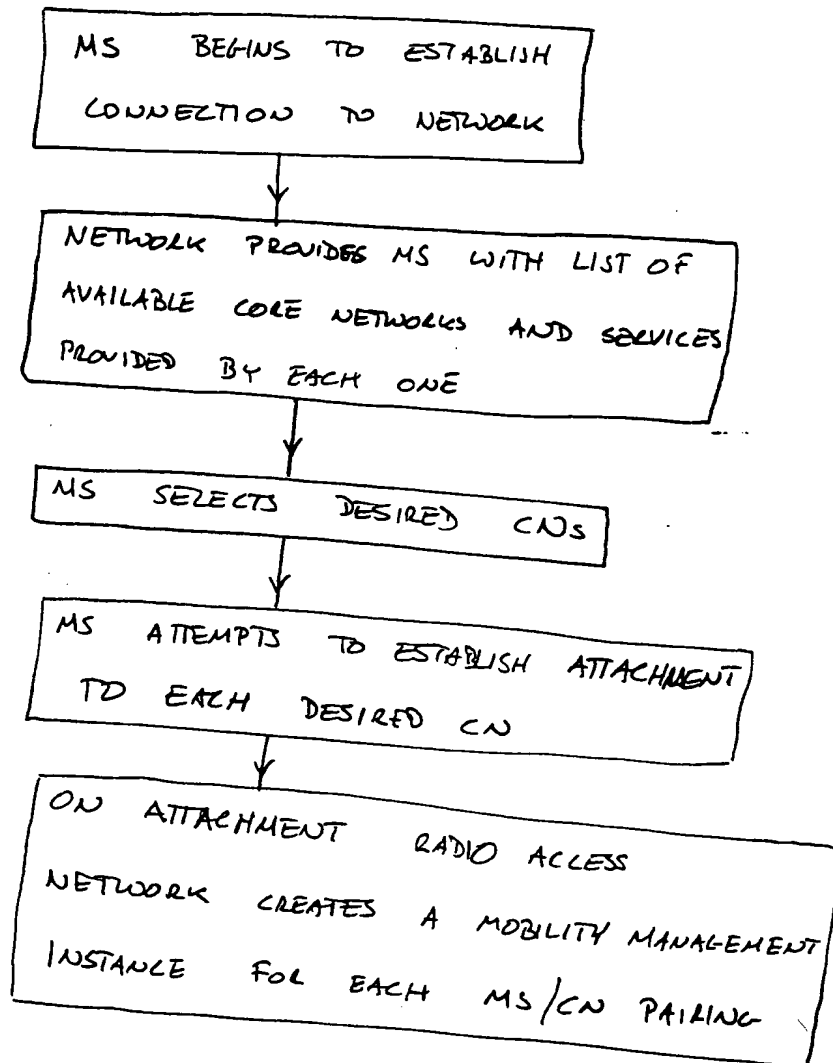 MS BEGINS TO ESTABLISH
CONNECTION TO NETWORK
NETWORK PROVIDES MS WITH LIST OF
AVAILABLE CORE NETWORKS AND SERVICES
PROVIDED BY EACH ONE
MS SELECTS DESIRED CNs
MS ATTEMPTS TO ESTABLISH ATTACHMENT
TO EACH DESIRED CN
ON ATTACHMENT RADIO ACCESS
NETWORK CREATES A MOBILITY MANAGEMENT
INSTANCE FOR EACH MS/CN PAIRING